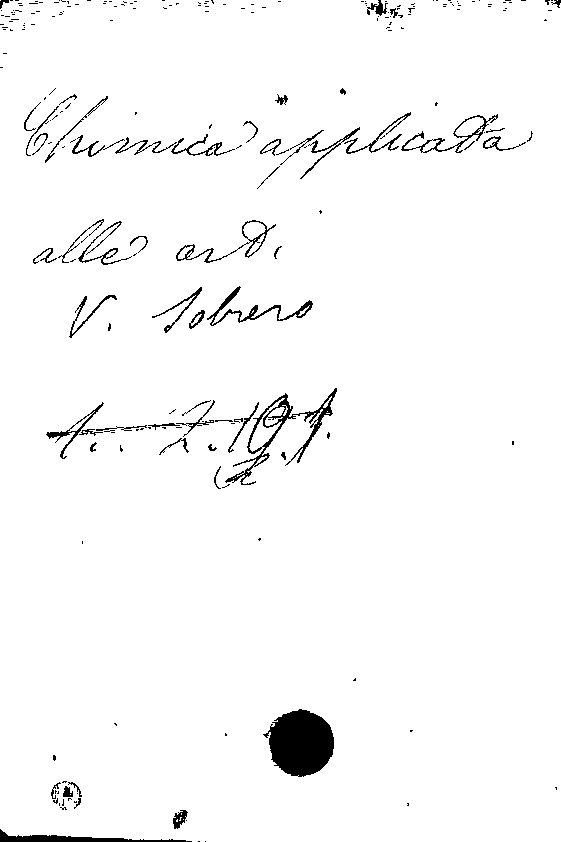 Chimica applicata
alle arti
V. Sobrero